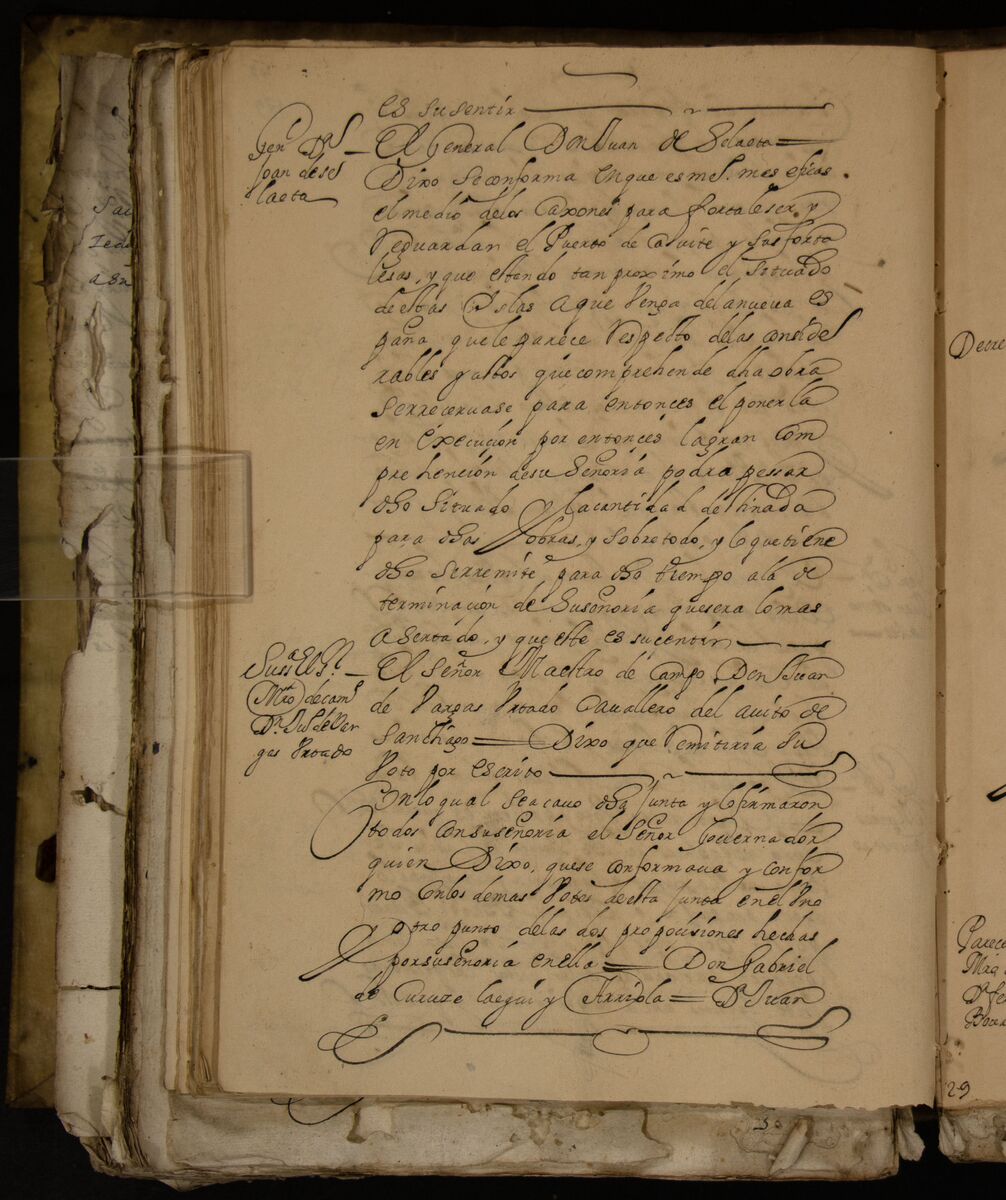 es su sentir
Gen.l D.n
Joan de se
laeta
El General Don Juan de Selaeta
Dixo se conforma en que es mes. mas eficas
el medio delos Caxones para fortaleser y
Reguardan el Puerto de Cauite y sus forta
lesas, y que estando tan proximo el situado
de estas Yslas a que Venga dela nueua es
paña que le parece Respecto delas conside
rables gastos que comprehende dha obra
serreceruase para entonces el ponerla
en execucion por entonces la gran com
prehencion de su Señoria podra pessar
dho situado y la cantidad destinada
para dhas obras, y sobre todo, y lo que tiene
dho serremite para dho tiempo ala de
terminacion de Su senoria que sera lo mas
asertado, y que este es su centir
Mro de cam.o
D.n Ju.o de Var
gas Vrtado
El señor Maestro de Campo Don Juan
de Vargas Vrtado Cauallero del auito de
Santhiago Dixo que Remitiria su
Voto por escrito
Con lo qual se acauo dha Junta y lo firmaron
todos con su senoria el Señor Gouernador
quien Dixo, que se conformaua y confor
mo con los demas Votos de esta Junta en el Vno
y otro punto delas dos propociciones hechas
por su senoria en ella Don Gabriel
de Curuze laegui y Arriola D.n Juan
Decre
Parece
Mrō
D.n fe
29